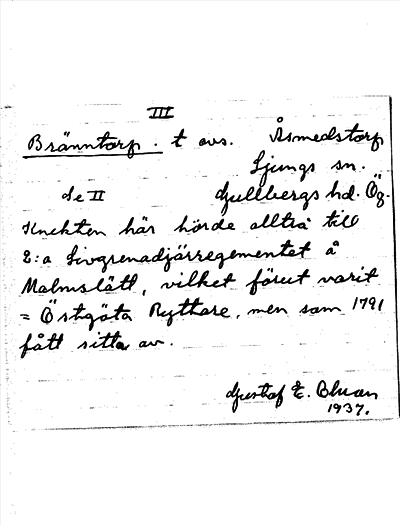 III
Bränntorp. t avs. Åsmedstorp
Ljungs sn.
Se II Gullbergs hd. Ög.
Knekten här hörde alltså till
2:a Livgrenadjärregementet å
Malmslätt, vilket förut varit
= Östgöta Ryttare, men som 1791
fått sitta av.
Gustaf E. Bluan
1937.